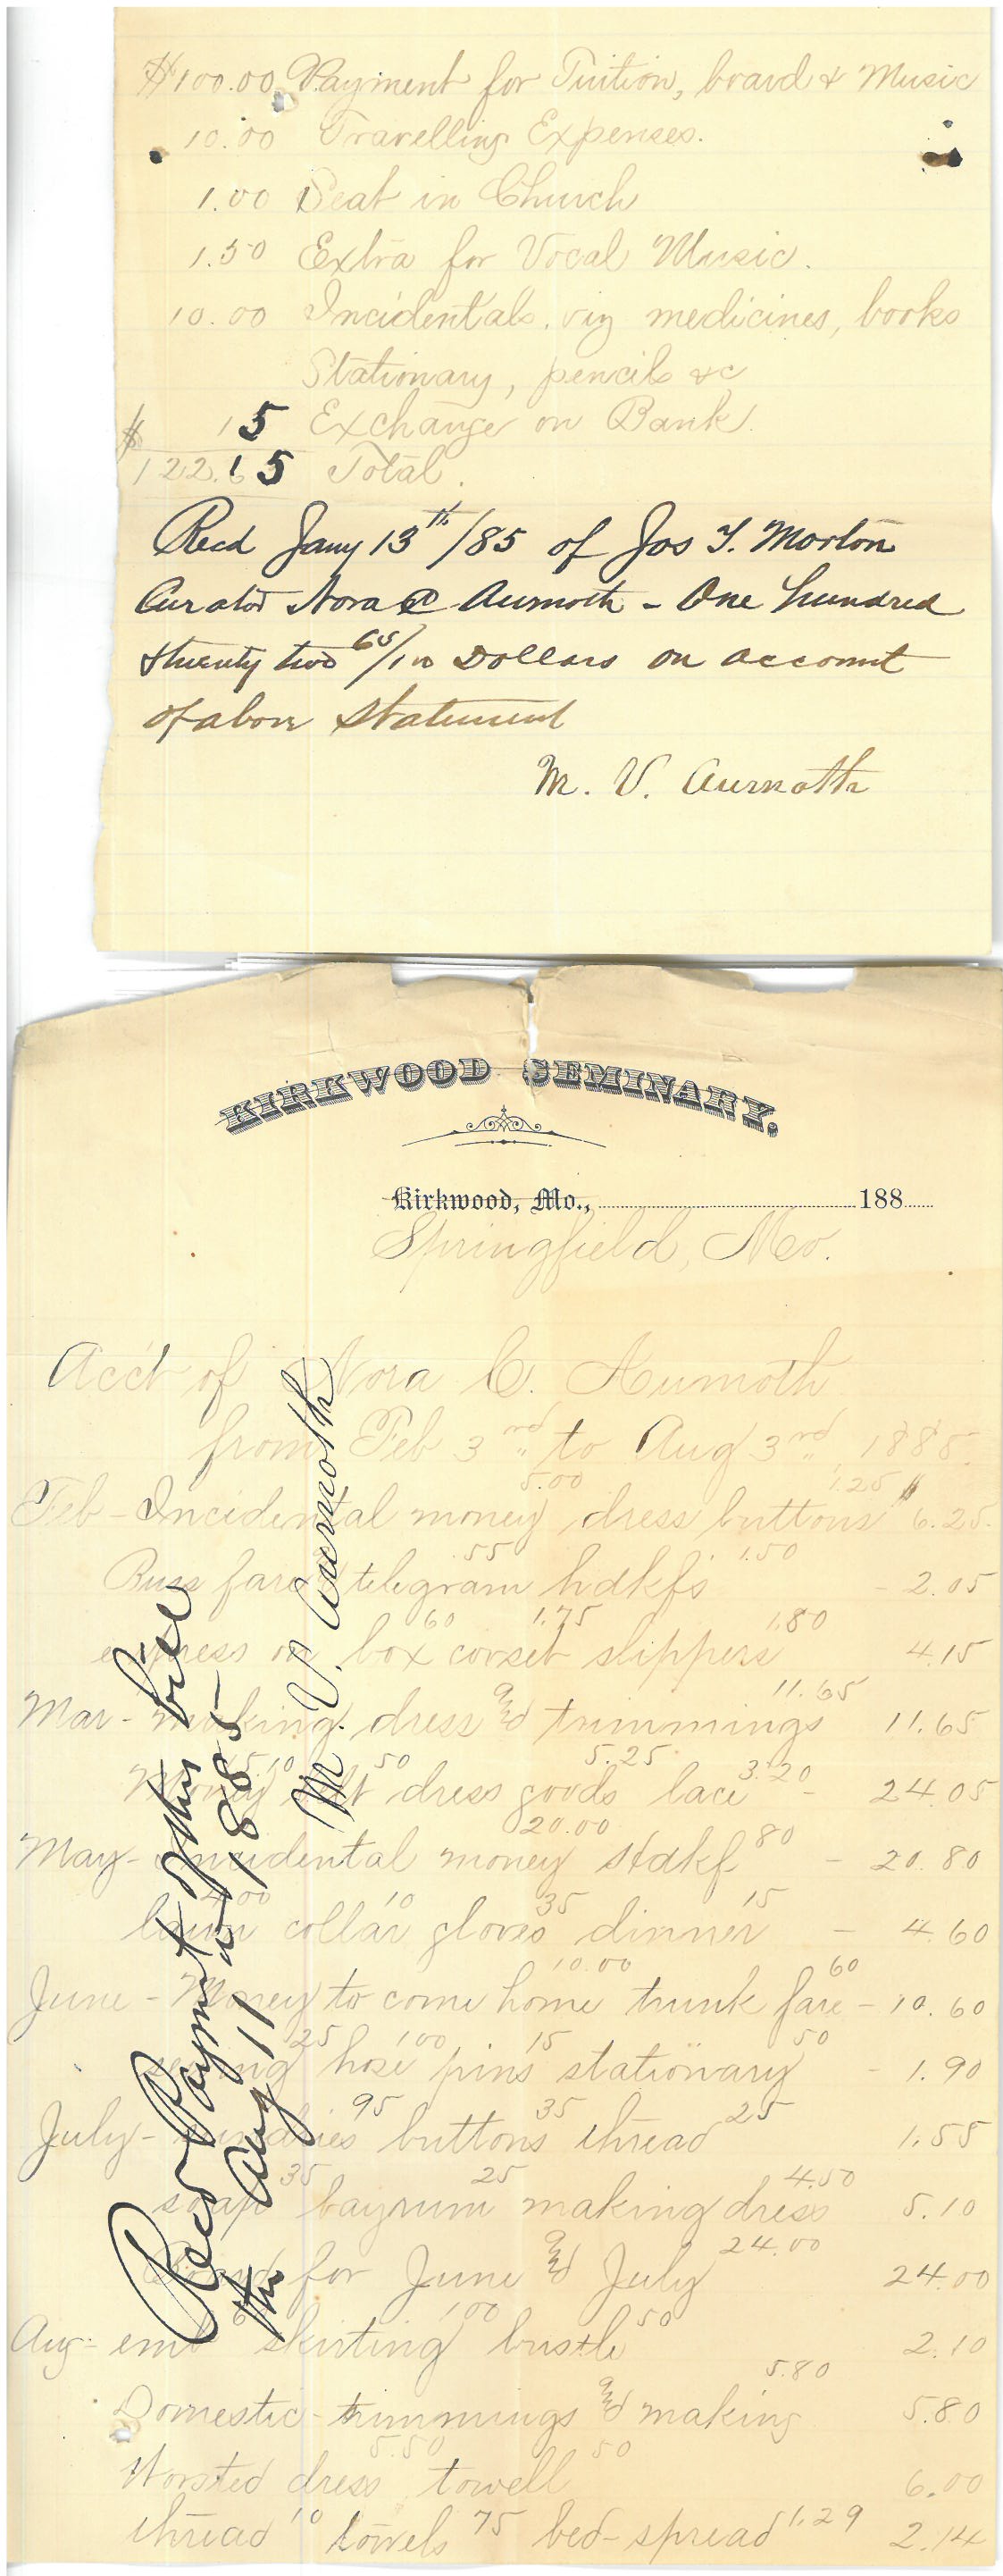 $100.00 Payment for Tuition, board & Music
10.00 Travelling Expenses.
1.00 Seat in Church
1.50 Extra for Vocal Music.
10.00 Incidentals. viz medicines, books
Stationary, pencils &c
$ 15 Exchange on Bank.
122.65 Total.
Recd Jany 13th/85 of Jos T. Morton
Curator Nora C Aumoth - One hundred
twenty two 65/100 Dollars on account
of above statement
M. V. Aurnoth
KIRKWOOD SEMINARY.
Kirkwood, Mo., 188
Springfield, Mo.
Acct of Nora C. Aumoth
from Feb 3rd to Aug 3rd 1885.
5.00 1.25
Feb - Incidental money dress buttons $ 6.25
55 1.50
Buss fare telegram hdkfs - 2.05
60 1.75 1.80
express on box corset slippers 4.15
11.65
Mar - making dress and trimmings 11.65
15.10 50 5.25 3.20
Money belt dress goods lace - 24.05
20.00 80
May - Incidental money hdkf - 20.80
4.00 10 35 15
lawn collar gloves dinner - 4.60
10.00 60
June - Money to come home trunk fare - 10.60
25 100 15 50
hose pins stationary - 1.90
95 35 25
July - sundries buttons thread 1.55
35 25 4.50
soap bayrum making dress 5.10
24.00
Board for June and July 24.00
60 1.00 50
Aug - emb skirting bustle 2.10
5.80
Domestic - trimmings and making 5.80
5.50 50
Worsted dress towell 6.00
thread 10 towels 75 bed-spread 1.29 2.14
Recd Payment of this bill
this Aug 11th 1885
M. V. Aurnoth